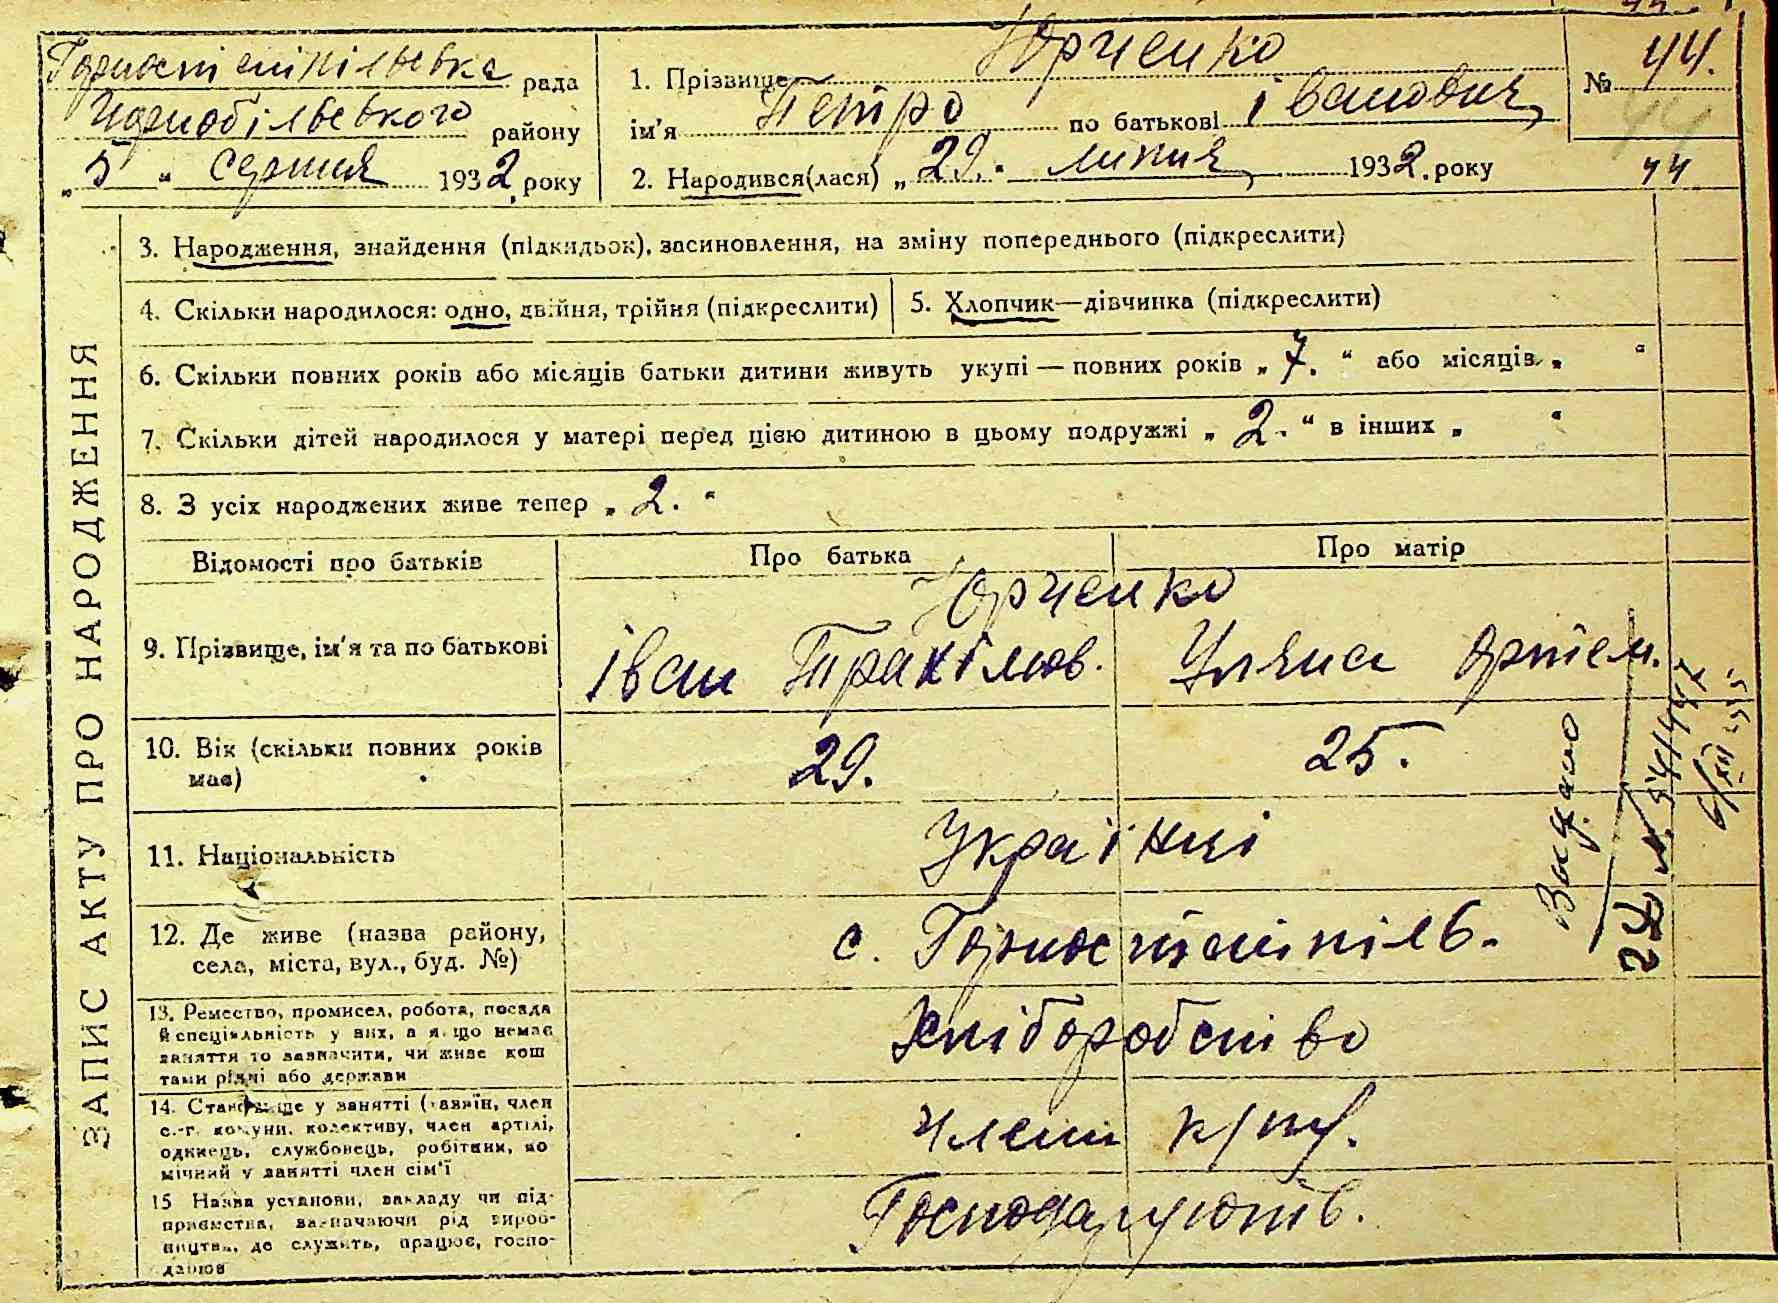 Горностайпільська рада
Чорнобильського району
„5“ серпня 1932 року
1. Прізвище Юрченко
ім'я Петро по батькові Іванович
2. Народився(лася) „29.“ липня 1932. року
№ 44.
44
44
ЗАПИС АКТУ ПРО НАРОДЖЕННЯ
3. Народження, знайдення (підкидьок), засиновлення, на зміну попереднього (підкреслити)
4. Скільки народилося: одно, двійня, трійня (підкреслити)
5. Хлопчик—дівчинка (підкреслити)
6. Скільки повних років або місяців батьки дитини живуть укупі — повних років „7.“ або місяців „ “
7. Скільки дітей народилося у матері перед цією дитиною в цьому подружжі „2.“ в інших „ “
8. З усіх народжених живе тепер „2.“
Відомості про батьків
Про батька
Про матір
9. Прізвище, ім'я та по батькові
Юрченко
Іван
Уляна Артем.
10. Вік (скільки повних років
має)
29.
25.
11. Національність
Українці
12. Де живе (назва району,
села, міста, вул., буд. №)
с. Горностайпіль.
13. Ремество, промисел, робота, посада
й спеціяльність у них, а якщо немає
заняття то зазначити, чи живе кош
тами рідні або держави
Хліборобство
14. Становище у занятті (хазяїн, член
с.-г. комуни, колективу, член артілі,
одинець, службовець, робітник, по
мічний у занятті член сім'ї
члени
15 Назва установи, закладу чи під-
приємства, зазначаючи рід вироб-
ництва, де служить, працює, госпо-
дарює
Господарюють.
Видано